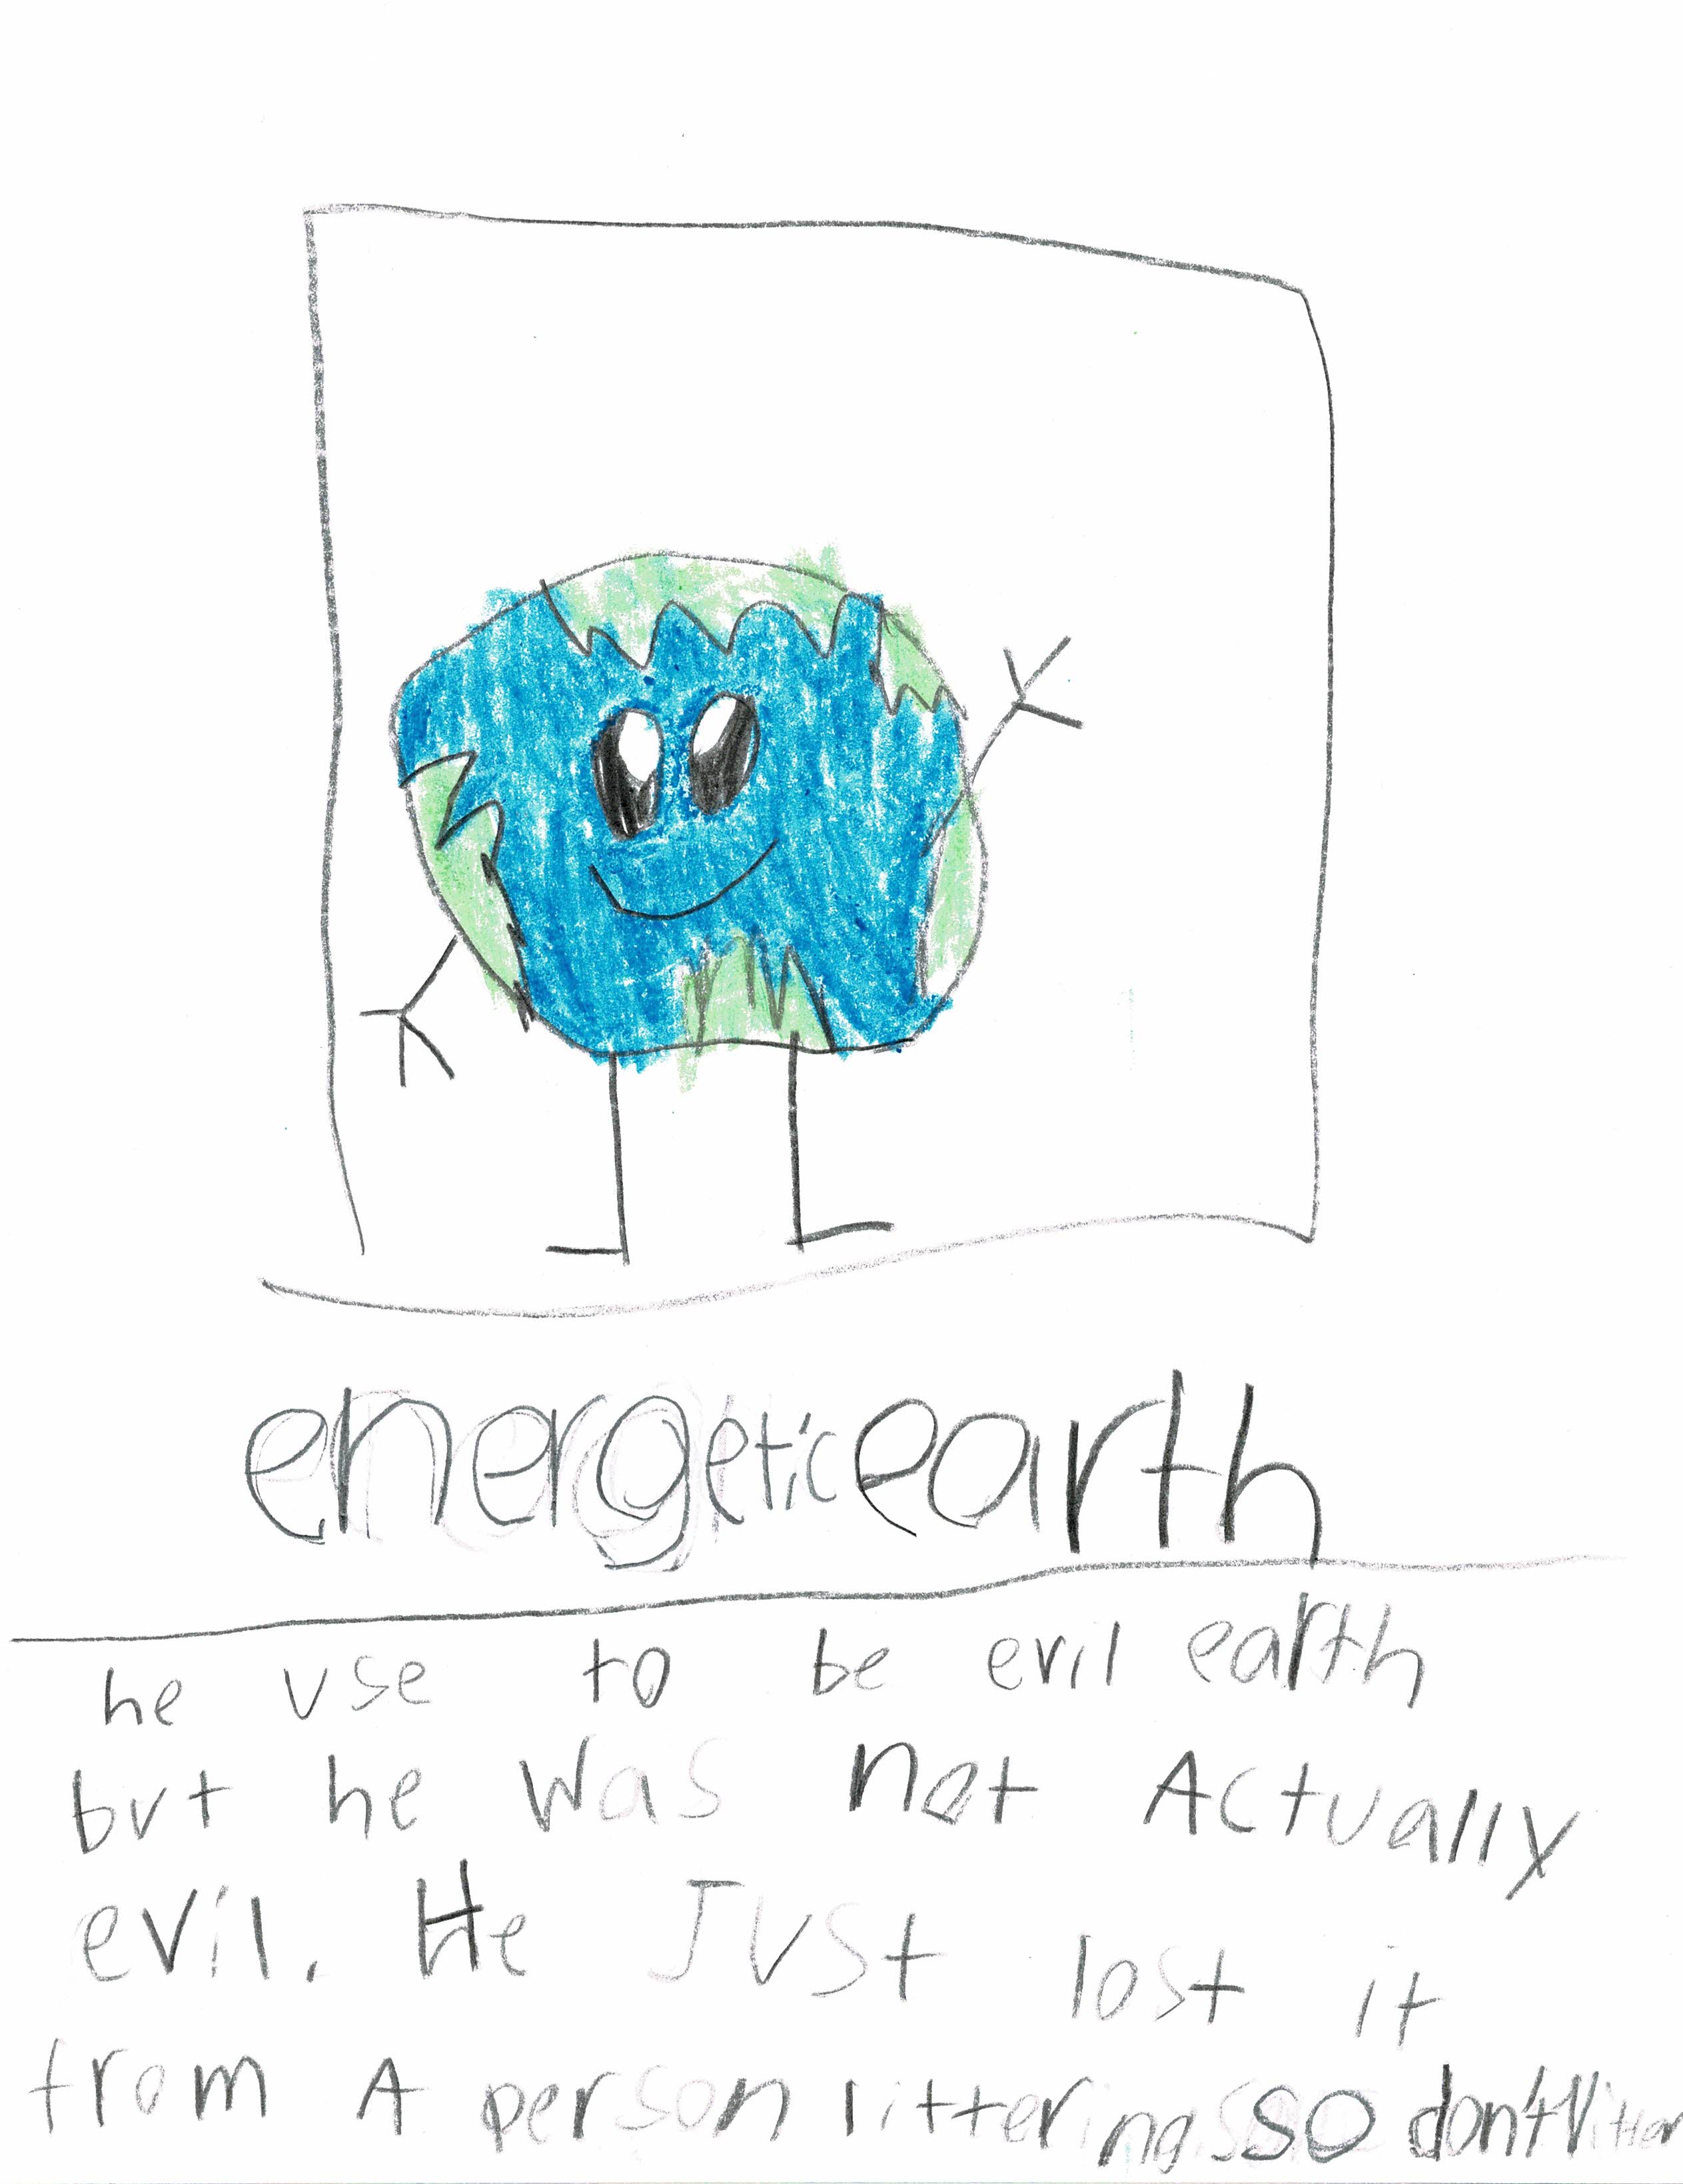 energetic earth
he use to be evil earth
but he was not Actually
evil. He Just lost it
from A person littering so don't litter